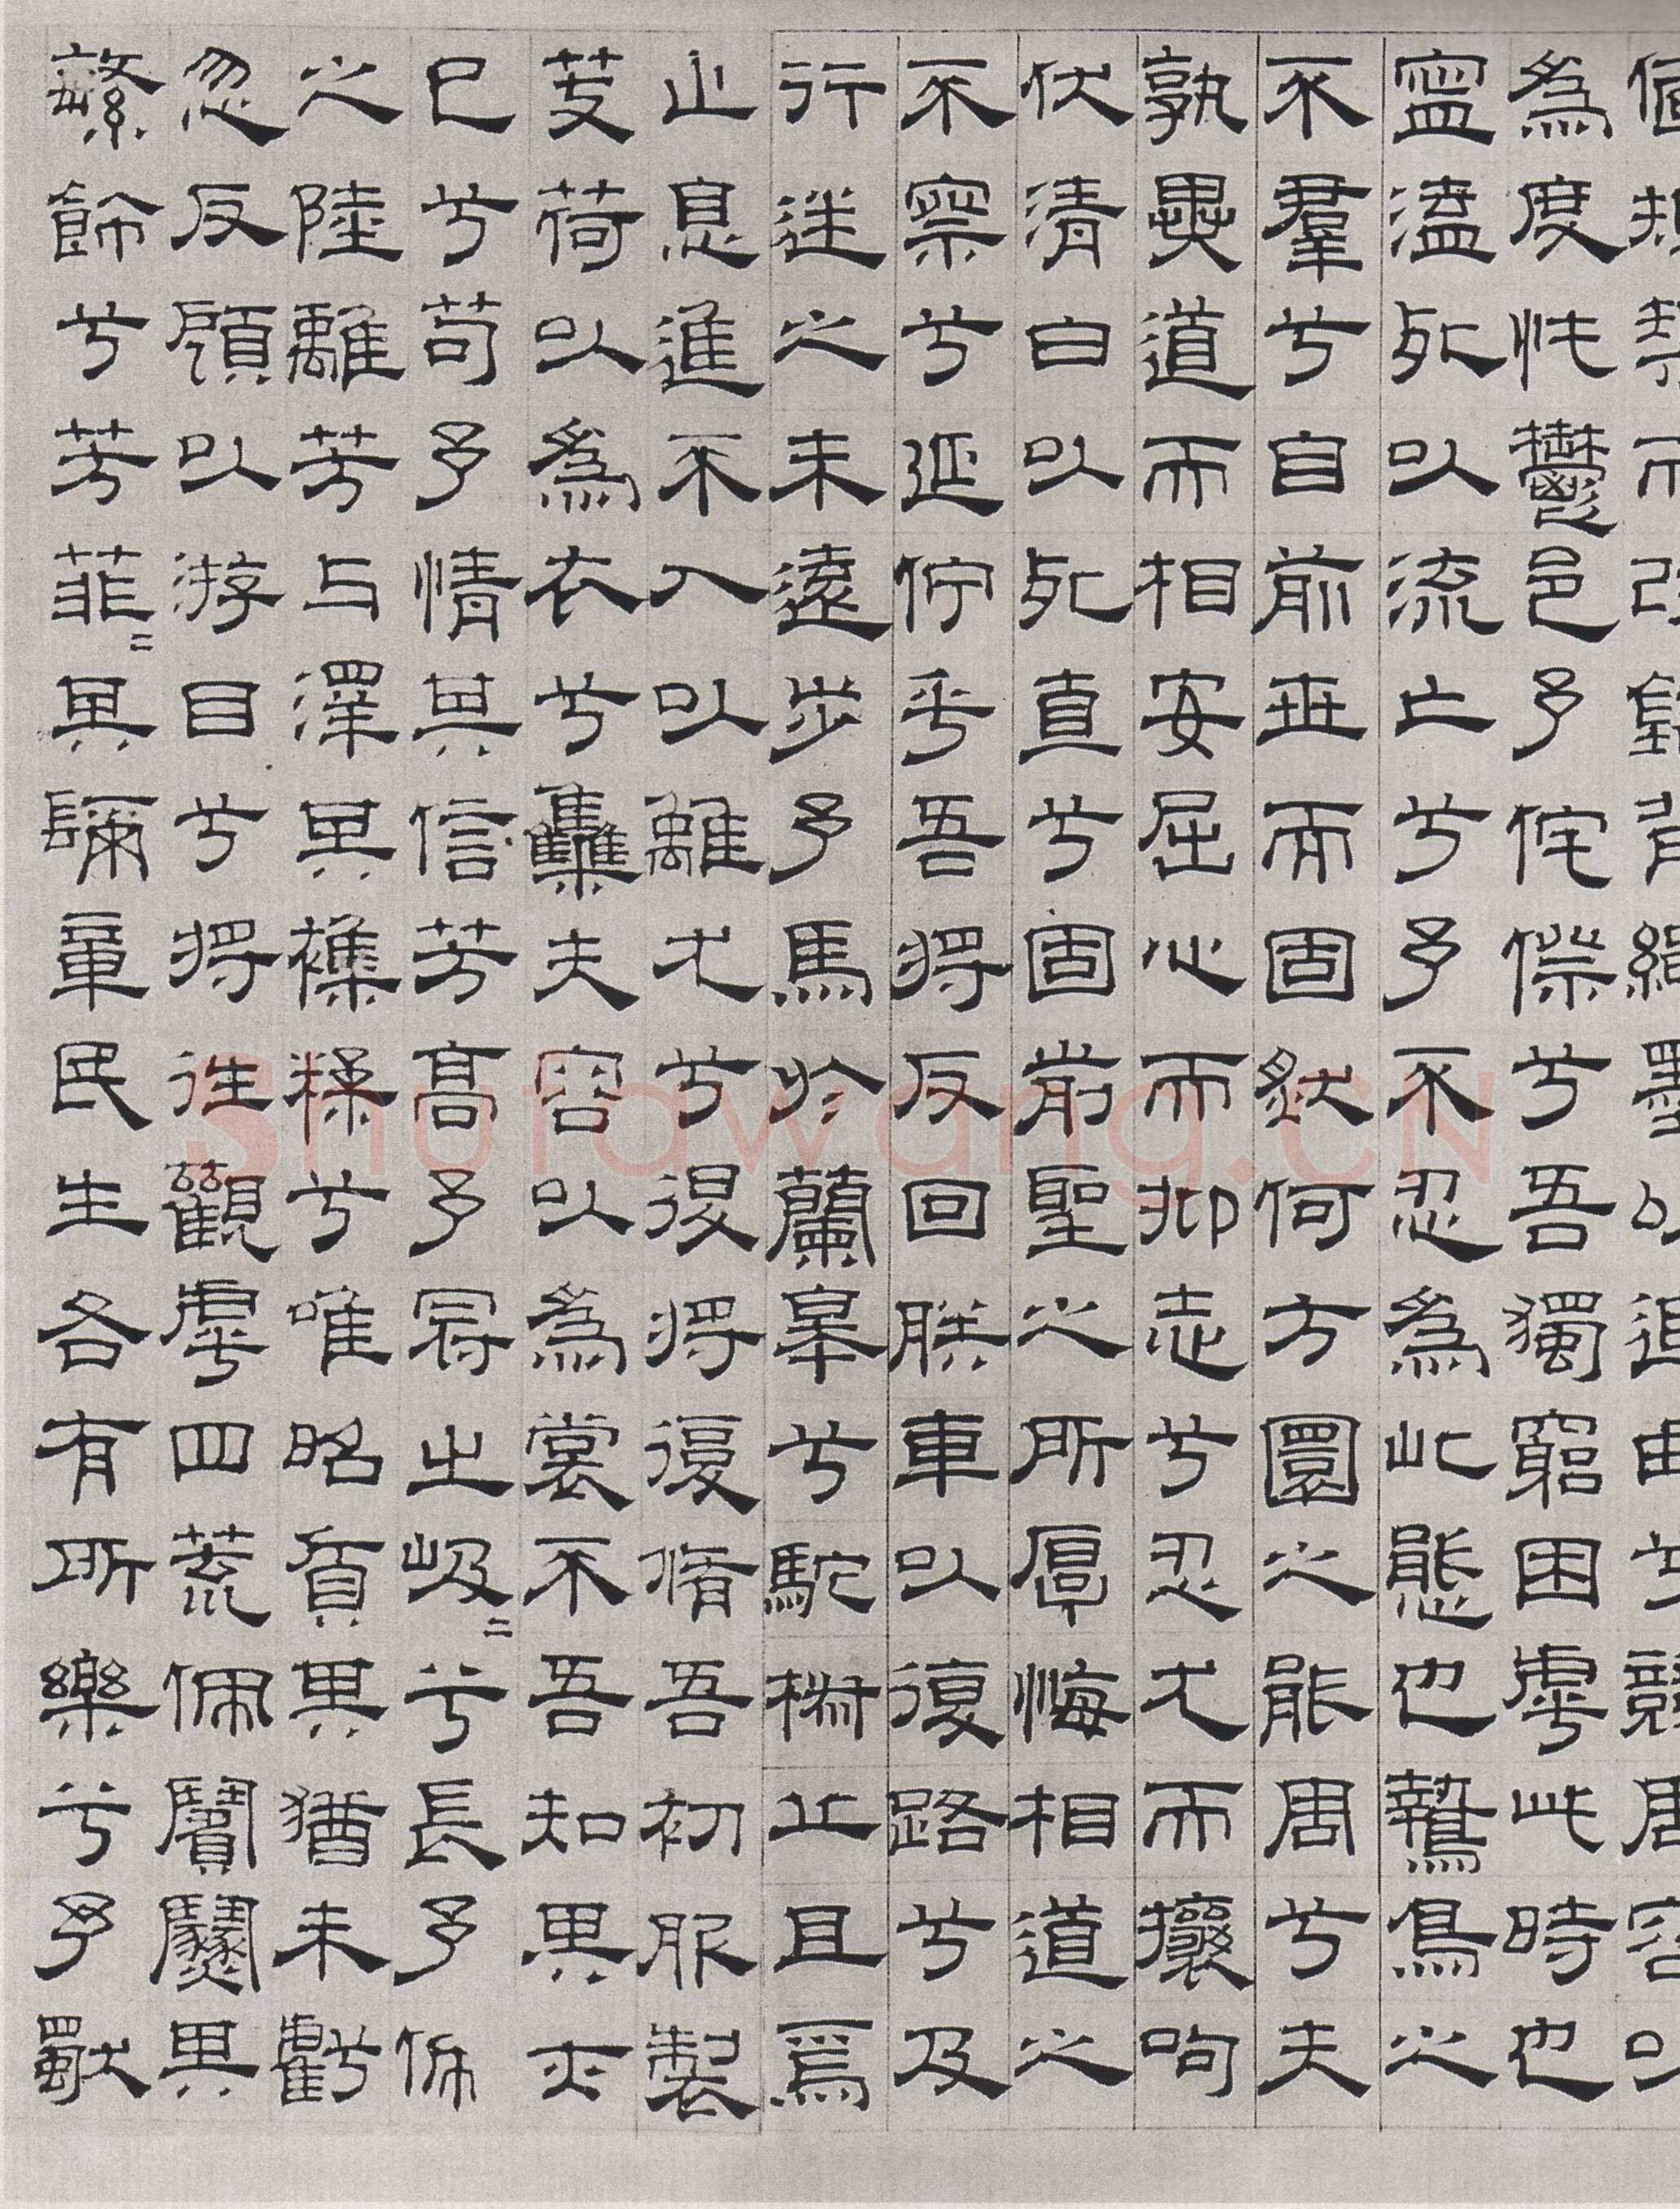 偭規榘而改錯背繩墨以追曲兮競周容以
為度忳鬱邑予侘傺兮吾獨窮困虖此時也
寍溘死以流亡兮予不忍為此態也鷙鳥之
不羣兮自前世而固然何方圜之能周兮夫
孰異道而相安屈心而抑志兮忍尤而攘呴
伏清白以死直兮固前聖之所厚悔相道之
不察兮延佇乎吾將反回朕車以復路兮及
行迷之未遠步予馬於蘭皋兮馳椒丘且焉
止息進不入以離尤兮復將復脩吾初服製
芰荷以為衣兮集夫容以為裳不吾知其亦
已兮苟予情其信芳高予冠之岌〻兮長予佩
之陸離芳与澤其襍糅兮唯昭質其猶未虧
忽反顧以游目兮將往觀虖四荒佩繽紛其
繁飾兮芳菲〻其彌章民生各有所樂兮予獨
Shufawang.CN